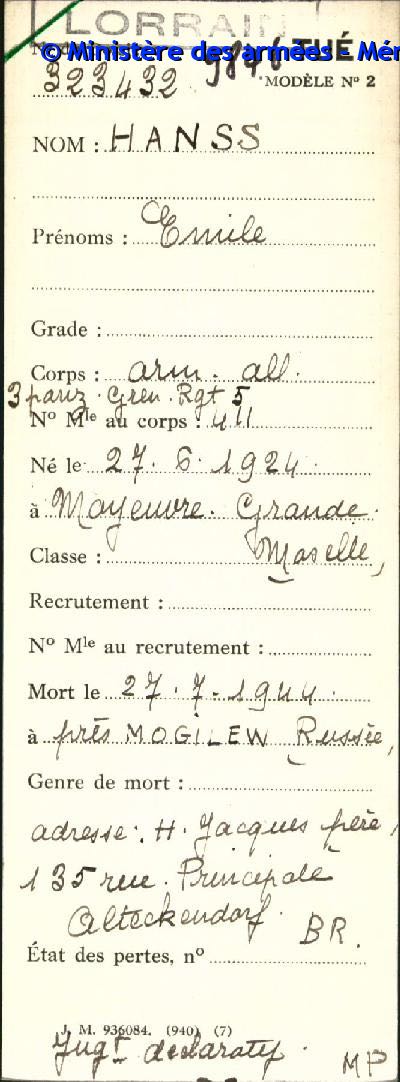 LORRAIN
© Ministère des armées - Mém
THÉ
323432 9876
MODÈLE Nº 2
NOM : HANSS
Prénoms : Emile
Grade :
Corps : arm. all.
3 panz. Gren. Rgt 5
Nº Mle au corps : 411
Né le 27.6.1924.
à Moyeuvre. Grande.
Moselle,
Classe :
Recrutement :
Nº Mle au recrutement :
Mort le 27.7.1944.
à près MOGILEW Russie,
Genre de mort :
adresse: H. Jacques père,
135 rue. Principale
Alteckendorf. BR.
État des pertes, nº
J. M. 936084. (940) (7)
Jugt declaratif.
MP